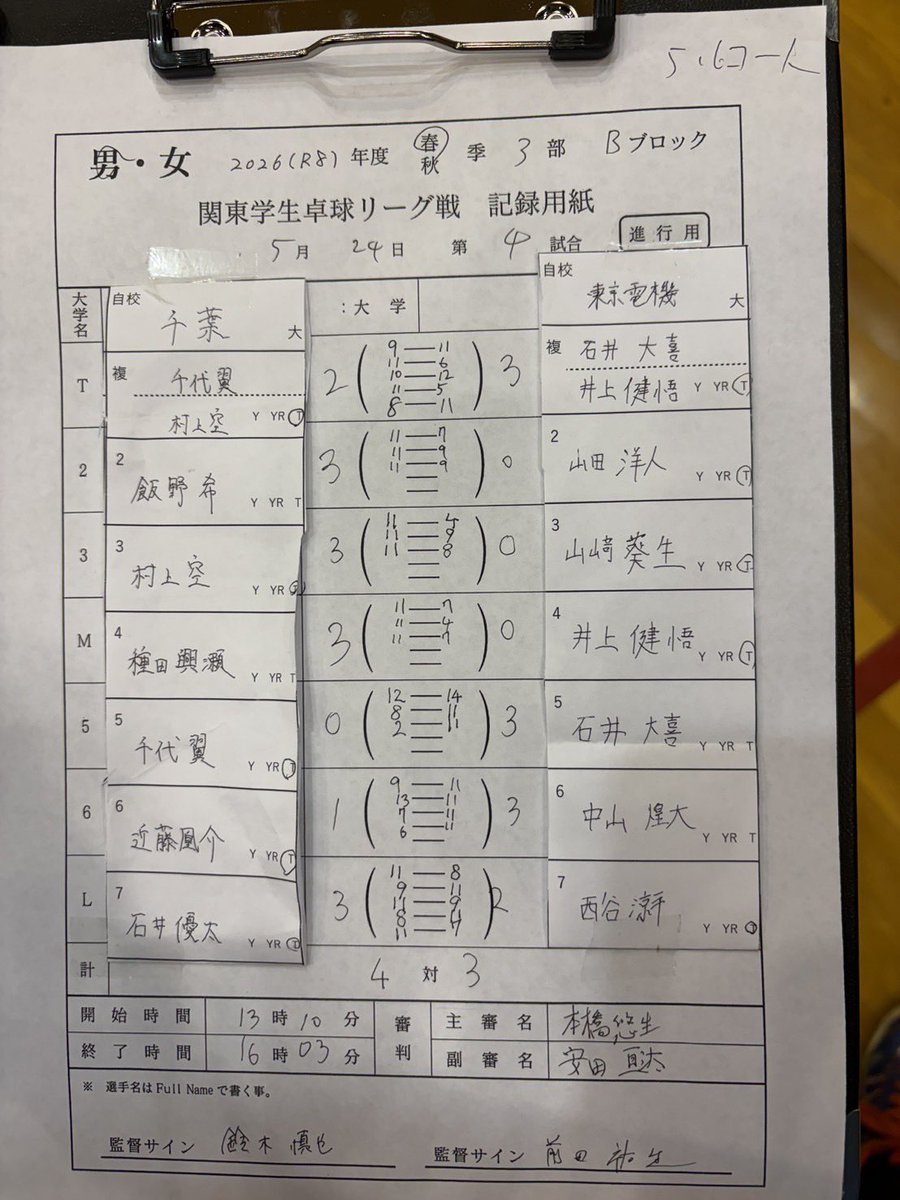 5,6コート
男・女 2026(R8)年度 春 秋 季 3 部 Bブロック
関東学生卓球リーグ戦 記録用紙
5月 24日 第 4 試合 進行用
大学名 自校 千葉 大 :大学 自校 東京電機 大
T 複 千代翼 村上空 Y YR T 2 ( ) 3 複 石井大喜 井上健悟 Y YR T
9—11
11—6
10—12
11—5
8—11
2 2 飯野希 Y YR T 3 ( ) 0 2 山田洋人 Y YR T
11—7
11—9
11—9
3 3 村上空 Y YR T 3 ( ) 0 3 山﨑葵生 Y YR T
11—4
11—9
11—8
M 4 種田興瀬 Y YR T 3 ( ) 0 4 井上健悟 Y YR T
11—7
11—4
11—7
5 5 千代翼 Y YR T 0 ( ) 3 5 石井大喜 Y YR T
12—14
8—11
2—11
6 6 近藤凰介 Y YR T 1 ( ) 3 6 中山煌大 Y YR T
9—11
13—11
7—11
6—11
L 7 石井優太 Y YR T 3 ( ) 2 7 西谷 Y YR T
11—8
9—11
11—9
8—11
11—
計 4 対 3
開始時間 13時10分 審判 主審名 本橋悠生
終了時間 16時03分 副審名 安田
※ 選手名はFull Nameで書く事。
監督サイン 鈴木慎也 監督サイン 前田